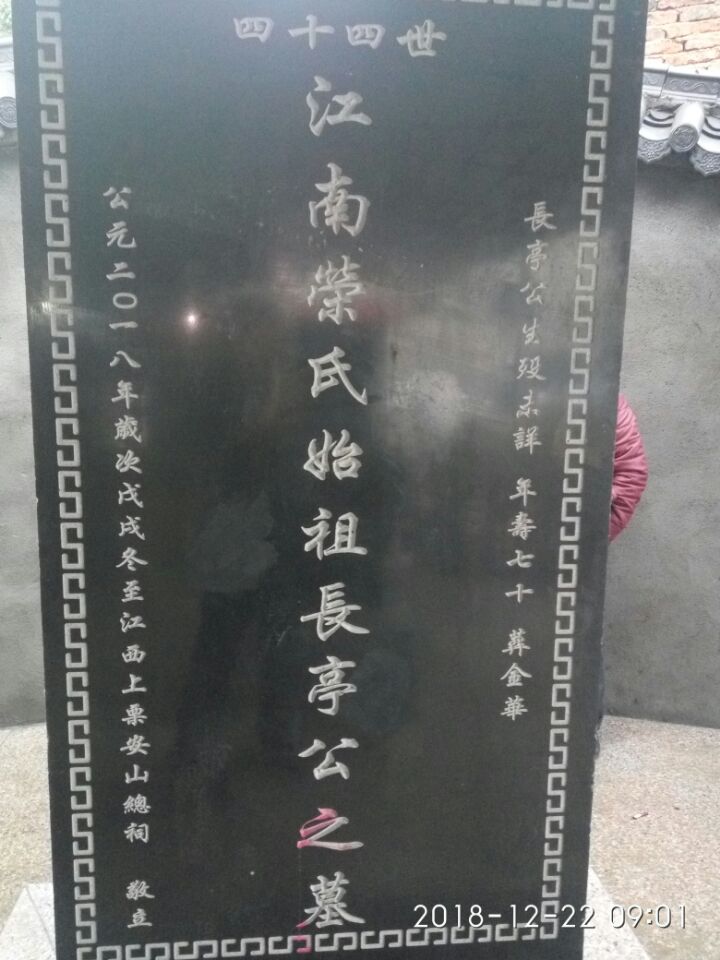 四十四世
長亭公生殁未詳 年壽七十 葬金華
江南榮氏始祖長亭公之墓
公元二〇一八年歲次戊戌冬至江西上栗安山總祠 敬立
2018-12-22 09:01